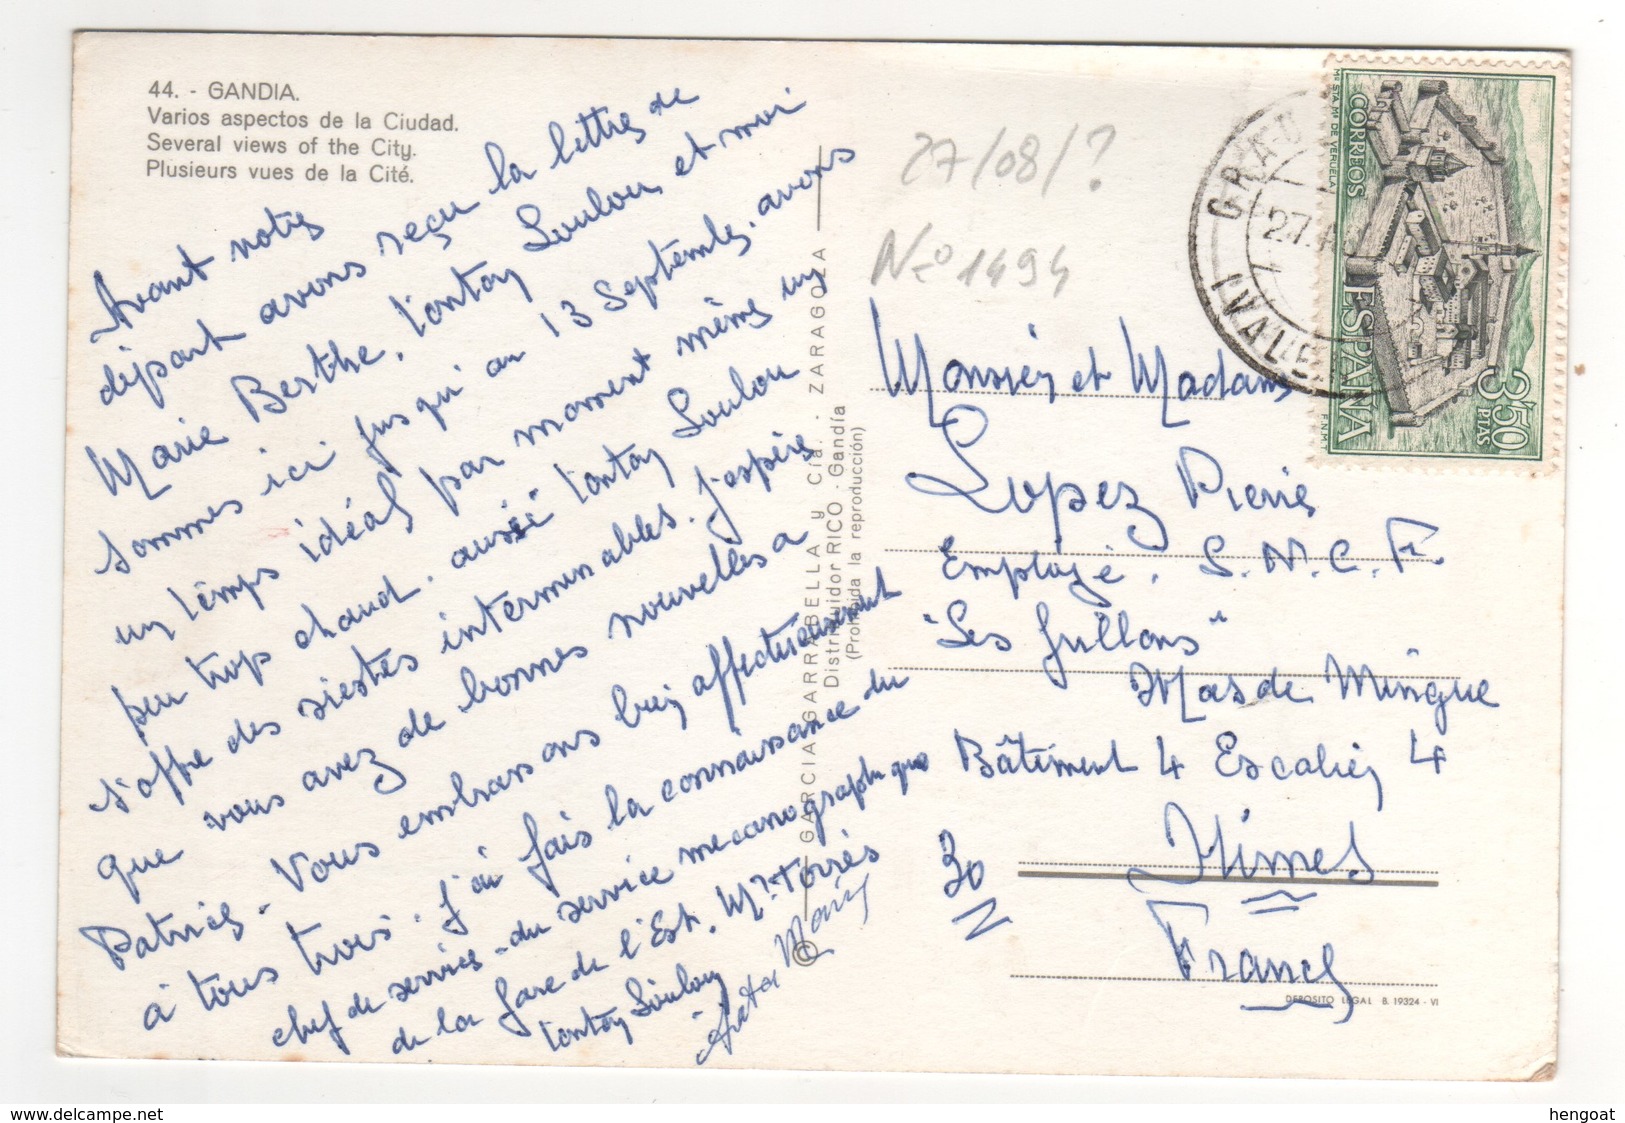 44. - GANDIA.
Varios aspectos de la Ciudad.
Several views of the City.
Plusieurs vues de la Cité.
Avant notre
départ avons reçu la lettre de
Marie Berthe. Tonton Loulou et moi
sommes ici jusqu'au 13 Septembre. avons
un temps idéal par moment même un
peu trop chaud. aussi tonton Loulou
s'offre des siestes interminables. J'espère
que vous avez de bonnes nouvelles à
Patrick - Vous embrassons bien affectueusement
à tous trois. J'ai fais la connaissance du
chef de service - du service mecanographique
de la gare de l'Est. Mr Torrès
tonton Loulou
Tata
GARCIA GARRABELLA y Cía. - ZARAGOZA
Distribuidor RICO - Gandía
(Prohibida la reproducción)
©
27/08/?
N° 1494
GRAO
27
(VALE
Mº STA Mª DE VERUELA
CORREOS
ESPAÑA
3'50
PTAS
F.N.M.T.
Monsieur et Madame
Lopez Pierre
Employé. S.N.C.F.
"Les Grillons"
Mas de Mingue
Bâtiment 4 Escalier 4
30
Nimes
France
DEPOSITO LEGAL B. 19324 - VI
www.delcampe.net
hengoat